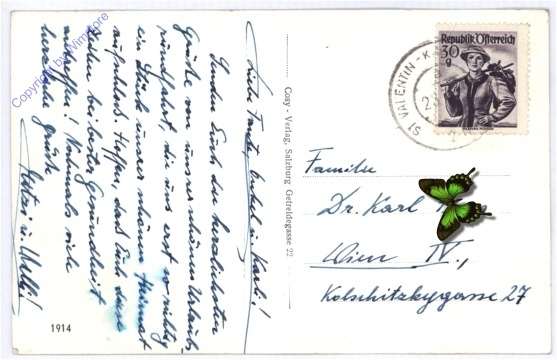 Liebe Tante, Onkel u. Karli!
Senden Euch die herzlichsten
Grüße von unsrer schönen Urlaubs-
rundfahrt, die uns erst so richtig
ein Stück unsrer schönen Heimat
aufschloß. Hoffen, daß Euch diese
Zeilen bei bester Gesundheit
antreffen! Nochmals viele
herzliche Grüße
u. Willi!
1914
Copyright by Wimstore
Cosy - Verlag, Salzburg Getreidegasse 22
ST. VALENTIN-
Republik Österreich
30
g
Familie
Dr. Karl
Wien IV.,
Kolschitzkygasse 27